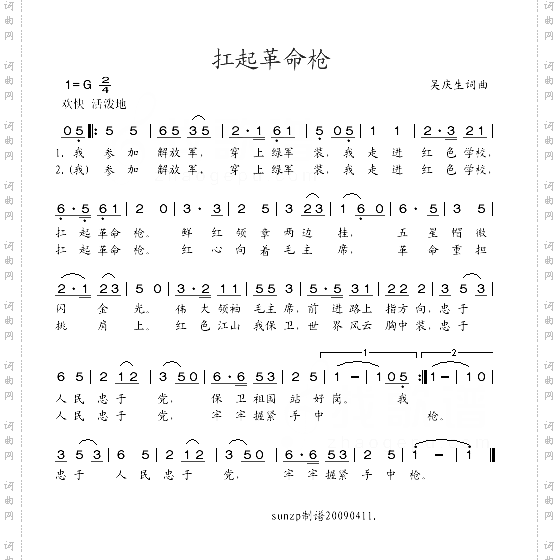 扛起革命枪
1=G 2/4
吴庆生词曲
欢快 活泼地
05 ‖: 5 5 | 65 35 | 2·1 61 | 5 05 | 1 1 | 2·3 21 |
1.我 参加 解放军, 穿上绿军 装, 我走进 红色学校,
2.(我) 参加 解放军, 穿上绿军 装, 我走进 红色学校,
6·5 61 | 2 03 | 3·3 | 2 5 | 3 23 | 1 60 | 6·5 | 3 5 |
扛起革命枪。 鲜红领章两边挂, 五星帽徽
扛起革命枪。 红心向着毛主席, 革命重担
2·1 23 | 5 0 | 3·3 23 | 5 6 53 | 2 35 | 3 21 | 22 2 | 3 53 |
闪金光。 伟大领袖毛主席, 前进路上指方向, 忠于
挑肩上。 红色江山我保卫, 世界风云胸中装, 忠于
1
2
6 5 | 2 12 | 3 50 | 6·6 53 | 2 5 | 1 - | 1 05 :‖ 1 - | 10 |
人民忠于党, 保卫祖国站好岗。 我
人民忠于党, 牢牢握紧手中 枪。
3 53 | 6 5 | 2 12 | 3 50 | 6·6 53 | 2 5 | 1 - | 1 ‖
忠于人民忠于党, 牢牢握紧手中枪。
sunzp制谱20090411.
词曲网